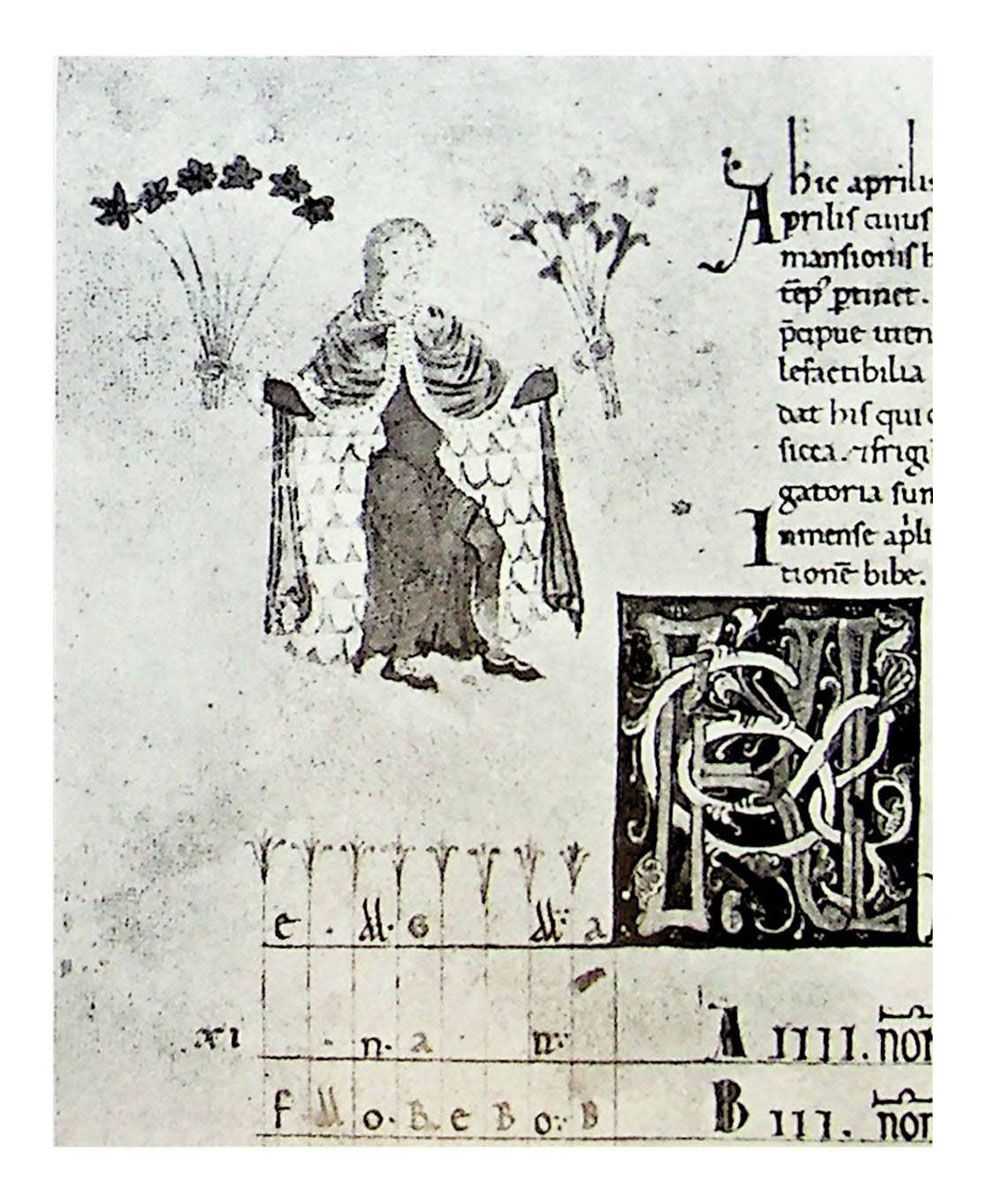 A hic aprili
Aprilis cuius
mansionis h
tēp' ꝑtinet.
p̄cipue uten
lefactibilia
dat his qui c
sicca. ⁊ frigi
gatoria sun
In mense ap̓li
tionē bibe.
KL
e . M . G M a
xi . n . a . n A IIII. non
f M o . B e B o . B B III. non